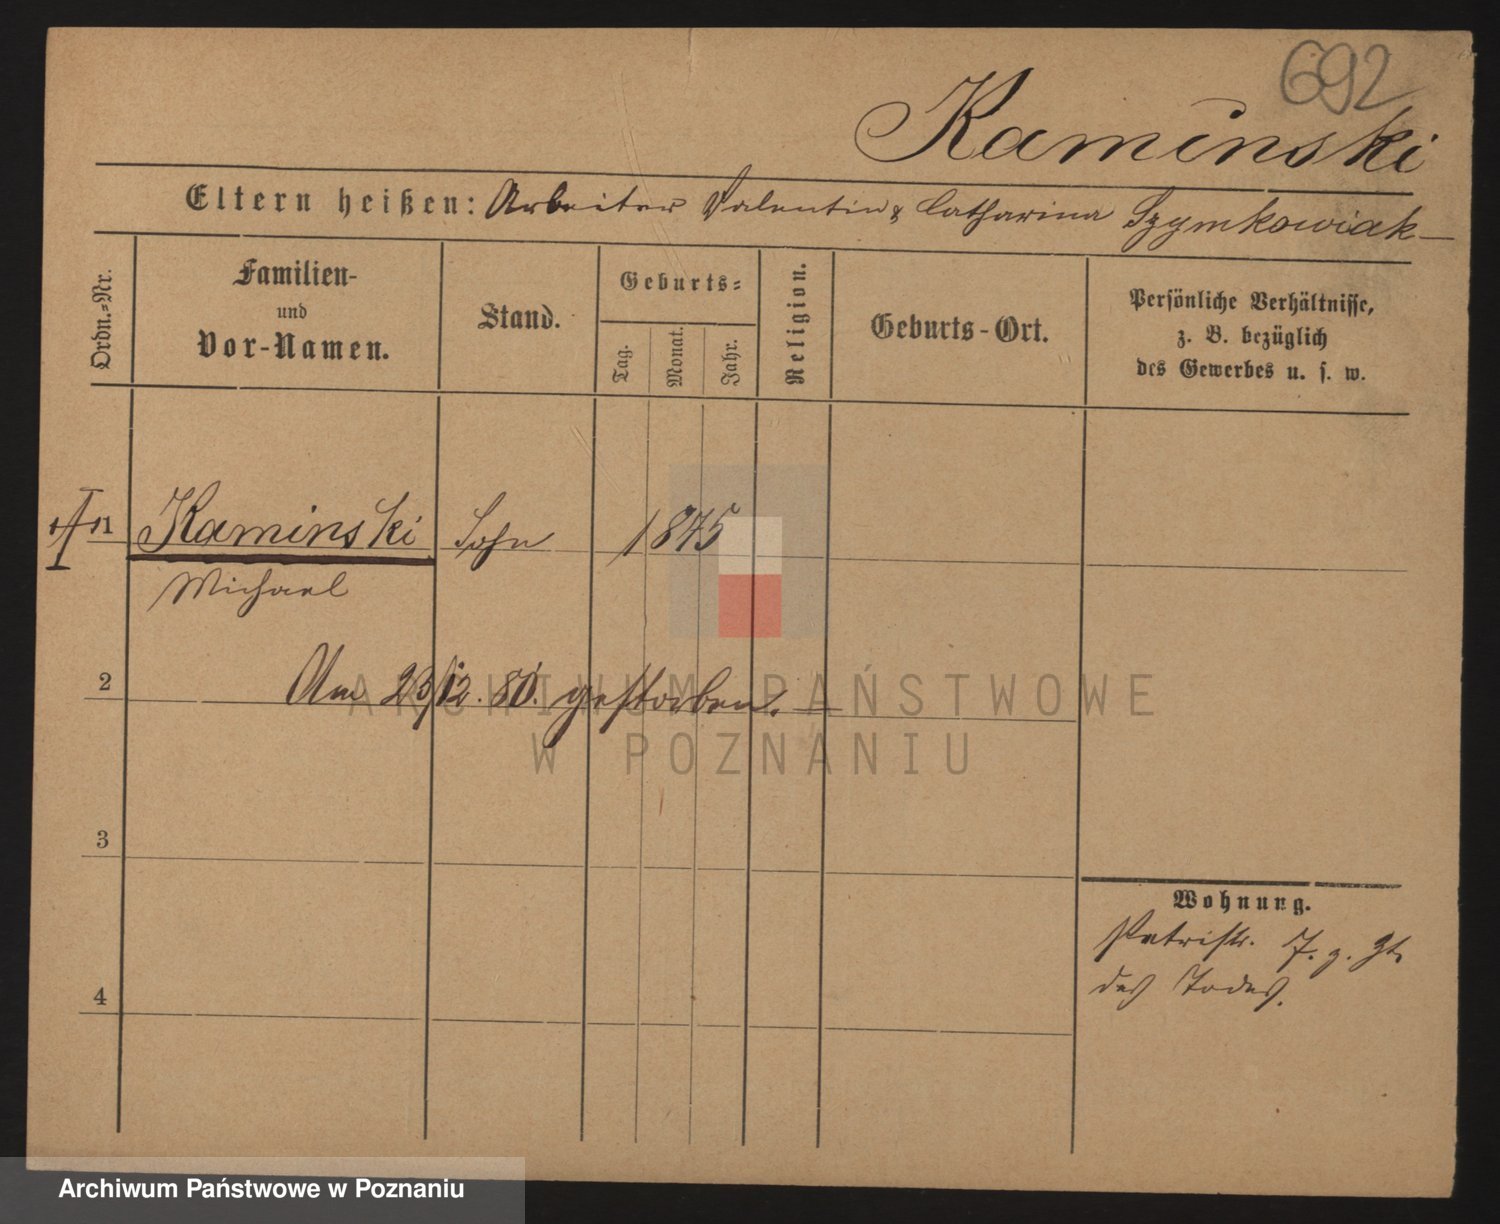 692
Kaminski
Eltern heißen: Arbeiter Valentin & Catharina Szymkowiak
Ordn.-Nr.
Familien-
und
Vor-Namen.
Stand.
Geburts-
Tag.
Monat.
Jahr.
Religion.
Geburts-Ort.
Persönliche Verhältnisse,
z. B. bezüglich
des Gewerbes u. s. w.
1 Kaminski Sohn 1875
Michael
2 Am 23/12. 80. gestorben.
ARCHIWUM PAŃSTWOWE
W POZNANIU
3
4
Wohnung.
Petristr. 7. z. Zt.
des Todes.
Archiwum Państwowe w Poznaniu